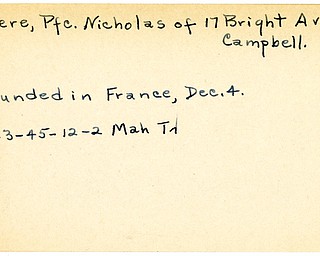 ere, Pfc. Nicholas of 17 Bright Av
Campbell.
unded in France, Dec. 4.
3-45-12-2 Mah Tr